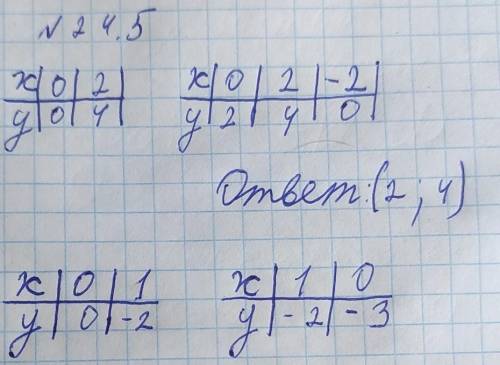 №24.5
x 0 2 x 0 2 -2
y 0 4 y 2 4 0
Ответ: (2; 4)
x 0 1 x 1 0
y 0 -2 y -2 -3